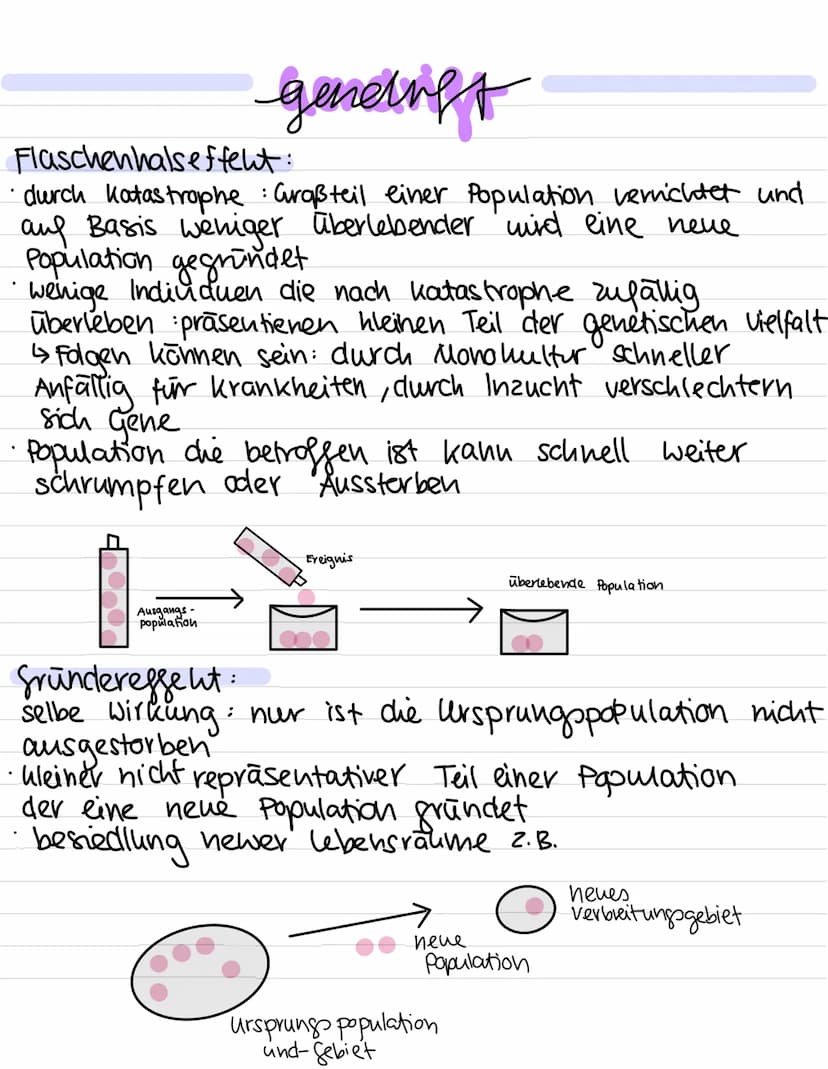 gendrift
Flaschenhalseffekt:
· durch Katastrophe : Großteil einer Population vernichtet und
auf Basis weniger Überlebender wird eine neue
Population gegründet
· wenige Individuen die nach Katastrophe zufällig
überleben : präsentieren kleinen Teil der genetischen Vielfalt
↳ Folgen können sein: durch Monokultur schneller
Anfällig für Krankheiten, durch Inzucht verschlechtern
sich Gene
· Population die betroffen ist kann schnell weiter
schrumpfen oder Aussterben
Ereignis
Ausgangs-
population
überlebende Population
Gründereffekt:
selbe Wirkung: nur ist die Ursprungspopulation nicht
ausgestorben
· kleiner nicht repräsentativer Teil einer Population
der eine neue Population gründet
· besiedlung neuer Lebensräume z.B.
neues
Verbreitungsgebiet
neue
Population
Ursprungspopulation
und-Gebiet